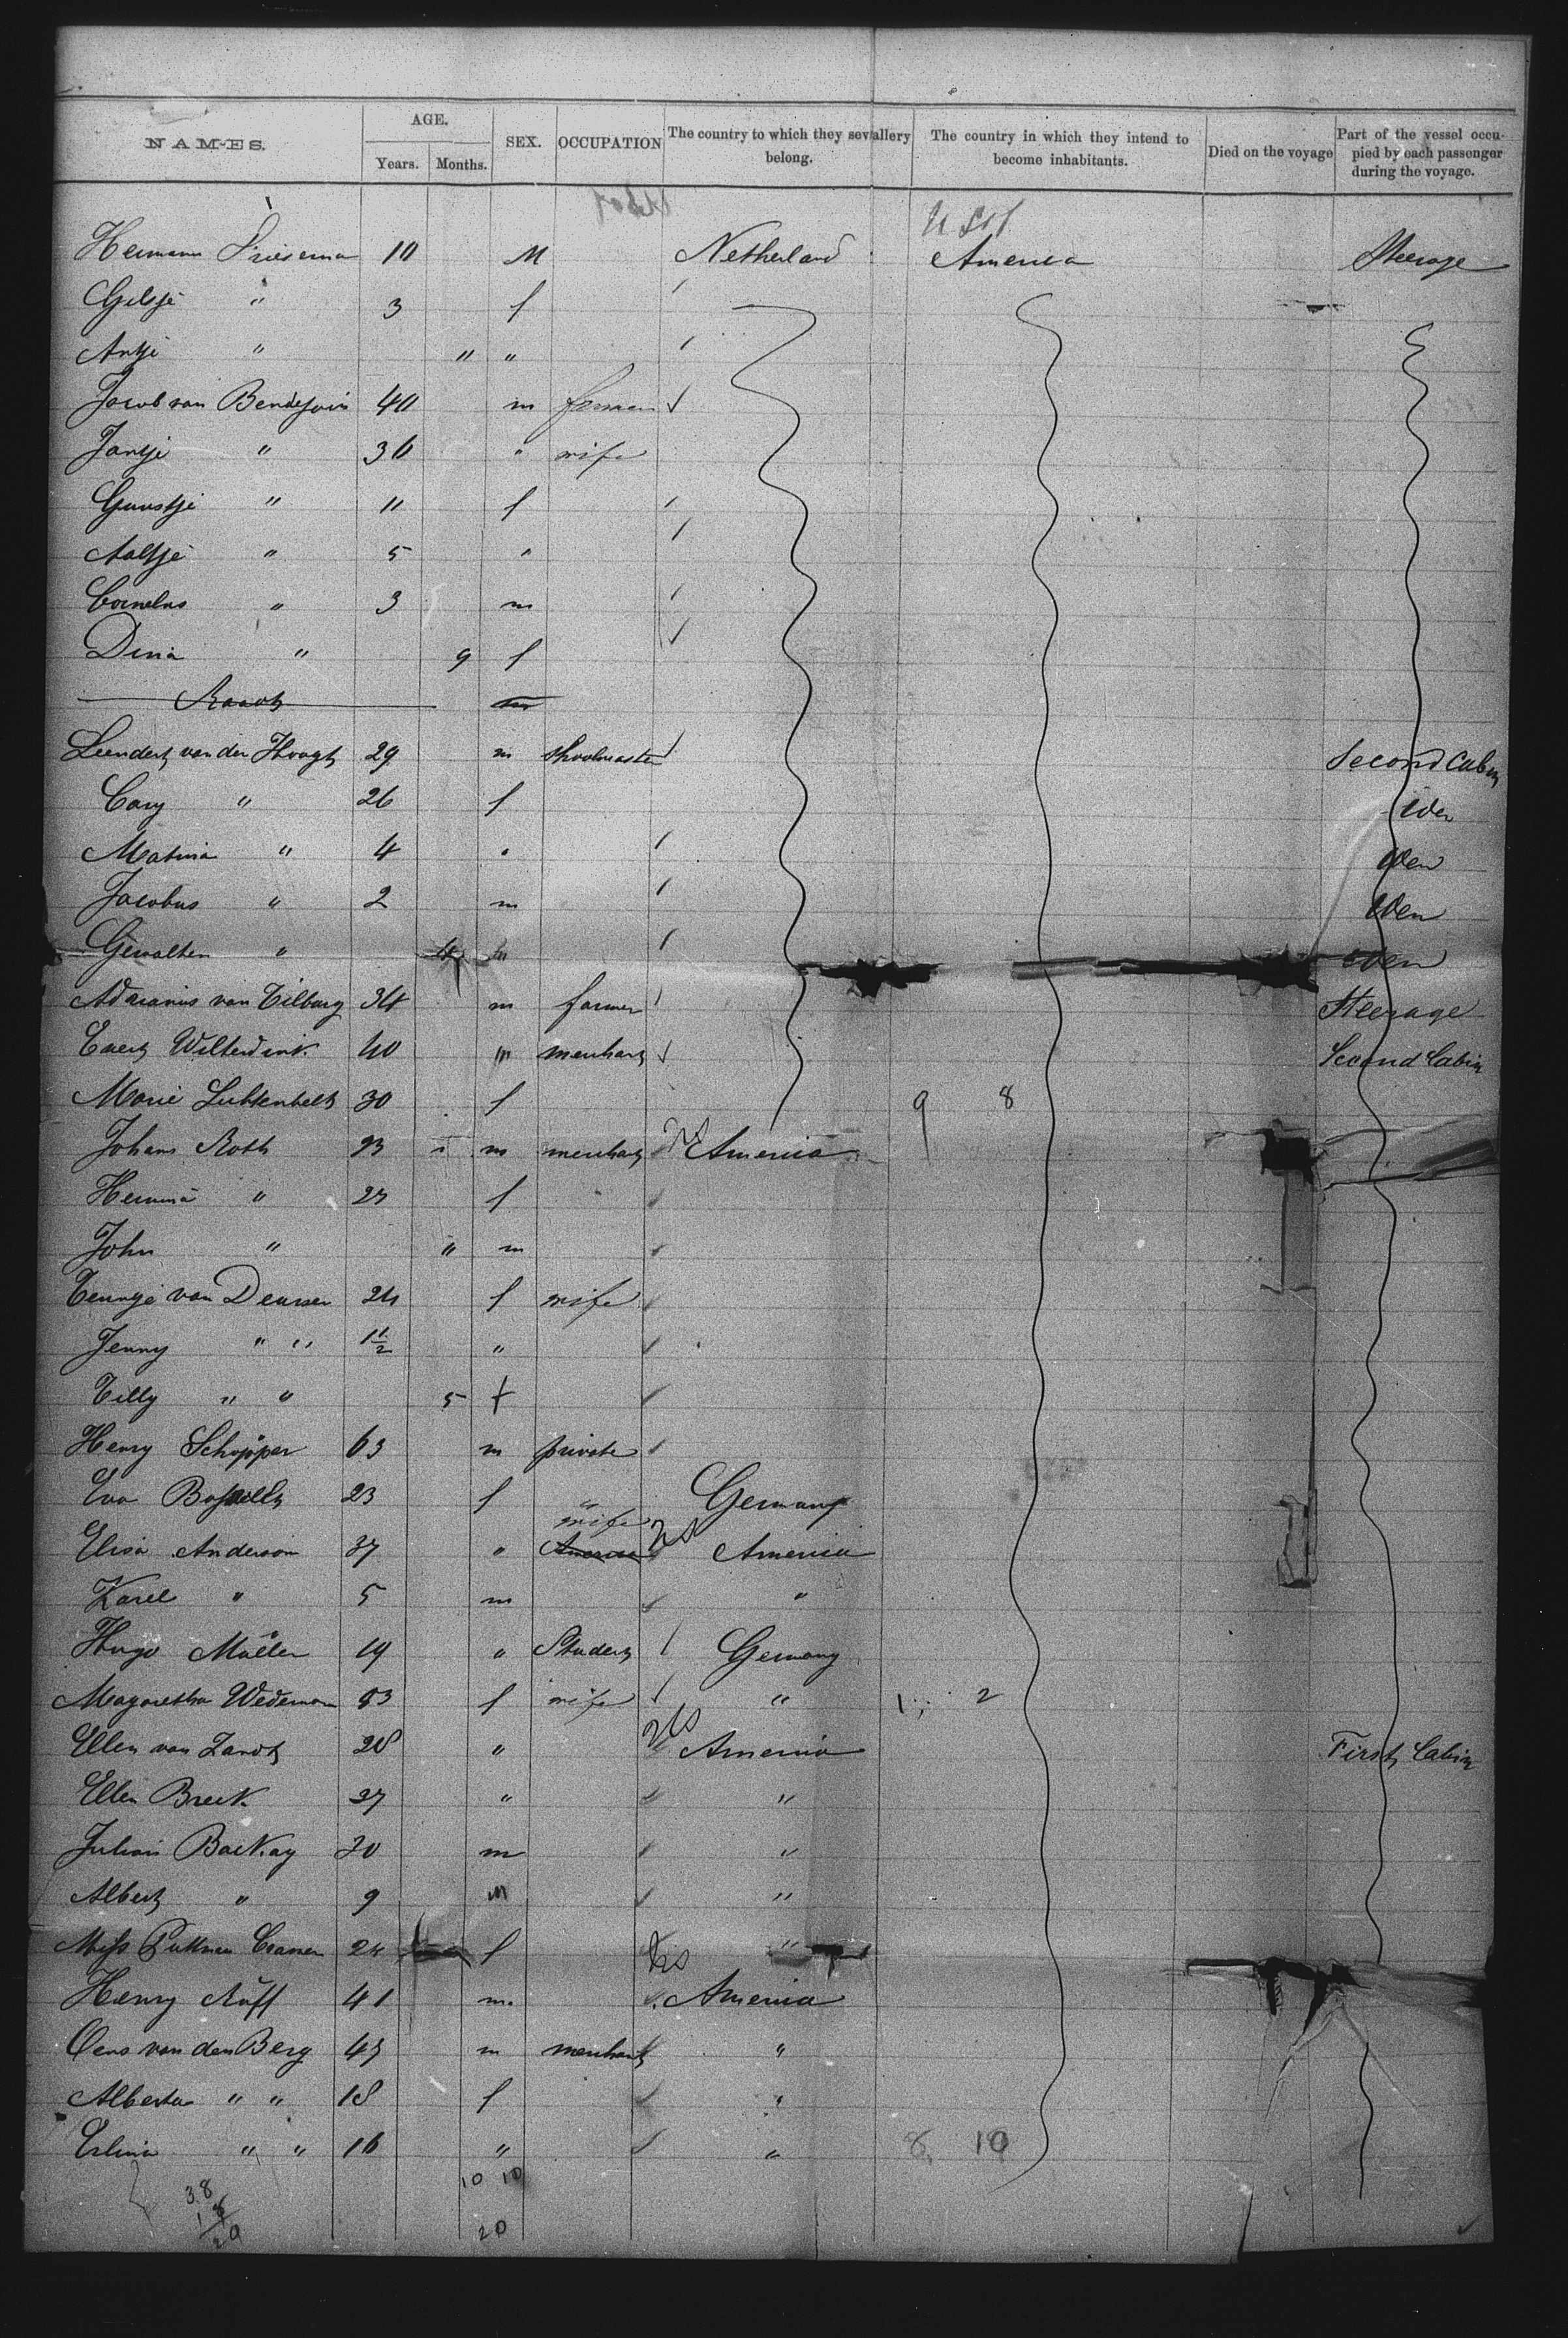 NAMES. AGE. SEX. OCCUPATION The country to which they severallery belong. The country in which they intend to become inhabitants. Died on the voyage Part of the vessel occupied by each passenger during the voyage.
Years. Months.
USA
Hermann 10 M Netherland America Steerage
" 3 f
Antje " " "
Jacob van 40 m farmer
Jantje " 36 " wife
" 11 f
Aaltje " 5 "
Cornelus " 3 m
Dina " 9 f
m
Leendert van der Hoogt 29 m Shoolmaster Second Cabin
Cary " 26 f idem
" 4 " idem
Jacobus " 2 m idem
" 4 m idem
Adrianus van Tilburg 34 m farmer Steerage
Evert Wilterdink 40 m merchant Second Cabin
Marie 30 f 9 8
Johann Roth 23 m merchant US America
" 27 f
John " " m
Teuntje van Deursen 24 f wife
Jenny " " 1 1/2 "
Tilly " " 5 f
Henry Schopper 63 m private
Eva 23 f " Germany
wife US
Elisa Anderson 37 " America America
Karel " 5 m "
Hugo Müller 19 " Student Germany
Magaretha Wedeman 53 f wife " 1 2
Ellen van Zandt 28 " US America First Cabin
Ellen Breck 27 " "
Julian 30 m "
Albert " 9 m "
Miss f US "
Henry Ruff 41 m America
van den Berg 43 m merchant "
Alberta " " 18 f "
" " 16 " " 8 10
10 10
38
18
20 20